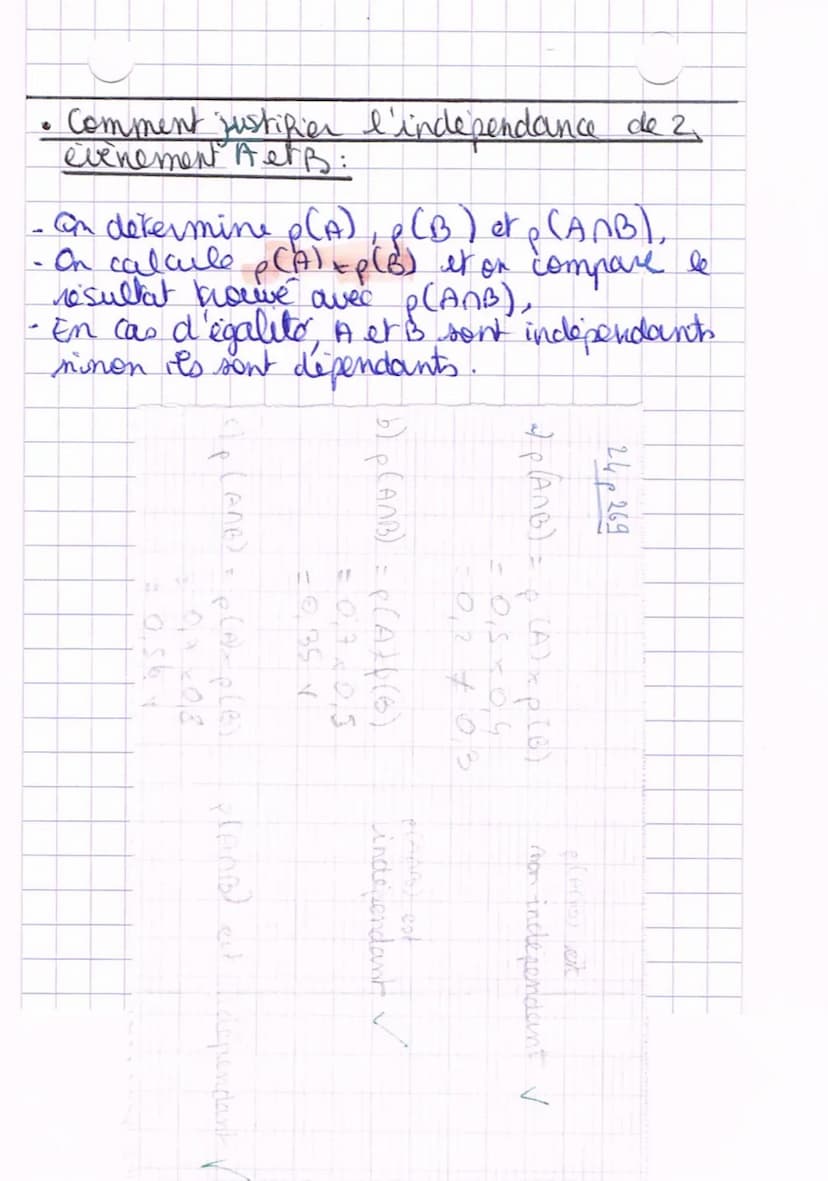 • Comment justifier l'indépendance de 2
évènement A et B :
- On détermine p(A), p(B) et p(A∩B),
- On calcule p(A)×p(B) et on compare le
résultat trouvé avec p(A∩B),
- En cas d'égalité, A et B sont indépendants
sinon ils sont dépendants.
24 p 269
a) p(A∩B) = p(A) × p(B)
= 0,5 × 0,4
= 0,2 ≠ 0,3
non indépendant ✓
b) p(A∩B) = p(A)×p(B)
= 0,7 × 0,5
= 0,35
est
indépendant ✓
c) p(A∩B) = p(A)×p(B)
0,7 × 0,8
= 0,56
p(A∩B) est dépendant ✓